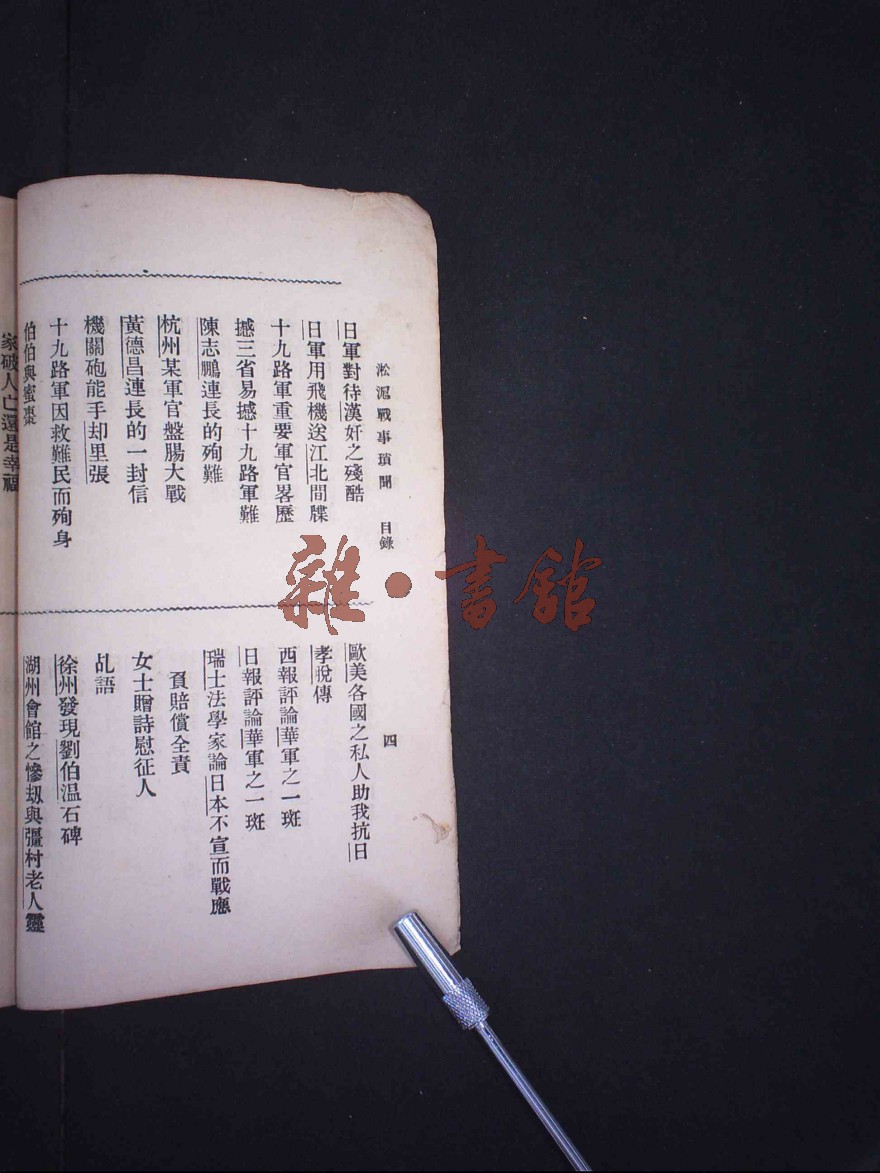 淞滬戰事瑣聞 目錄 四
日軍對待漢奸之殘酷
日軍用飛機送江北間牒
十九路軍重要軍官畧歷
撼三省易撼十九路軍難
陳志鵬連長的殉難
杭州某軍官盤腸大戰
黃德昌連長的一封信
機關砲能手却里張
十九路軍因救難民而殉身
伯伯與蜜棗
歐美各國之私人助我抗日
孝悅傳
西報評論華軍之一斑
日報評論華軍之一斑
瑞士法學家論日本不宣而戰應
負賠償全責
女士贈詩慰征人
乩語
徐州發現劉伯温石碑
湖州會館之慘刼與彊村老人靈
家破人亡還是幸福
雜·書館